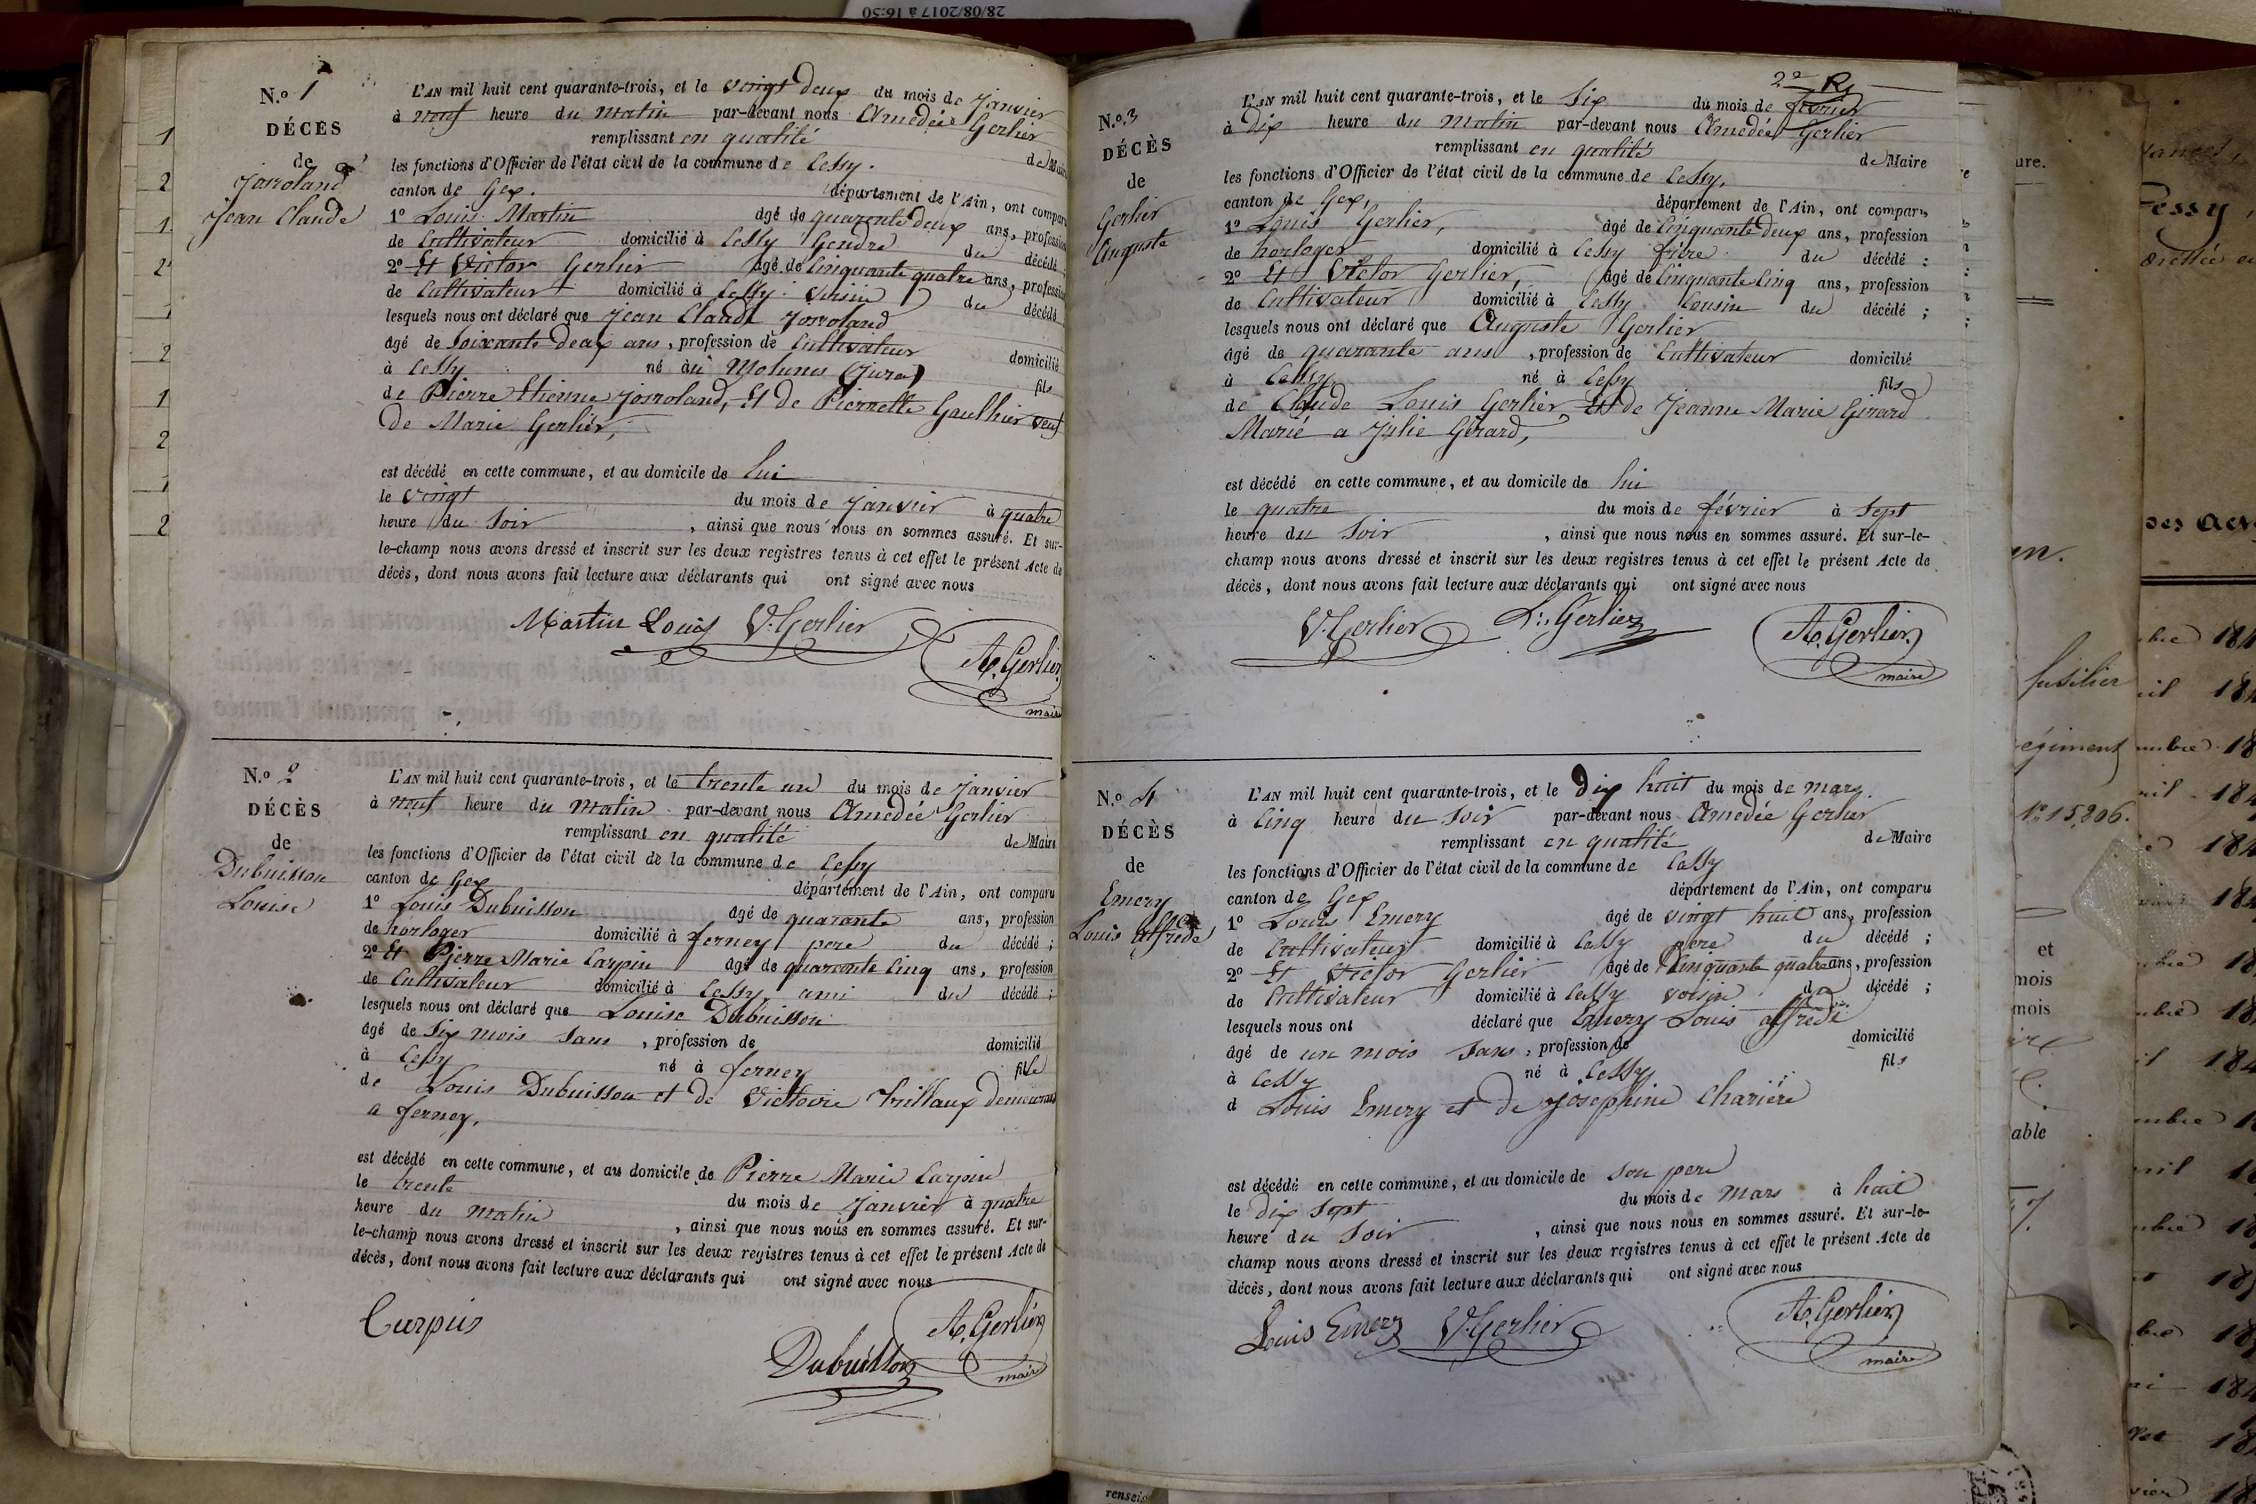 28/08/2017 à 16:50
N.º 1
DÉCÈS
de
Jean Claude
L'AN mil huit cent quarante-trois, et le vingt deux du mois de Janvier
à neuf heure du matin par-devant nous Amedée Gerlier
remplissant en qualité de Maire
les fonctions d'Officier de l'état civil de la commune de Cessy.
canton de Gex. département de l'Ain, ont comparu
1º Louis Martin âgé de quarente deux ans, profession
de Cultivateur domicilié à Cessy Gendre du décédé
2º Et Victor Gerlier âgé de Cinquante quatre ans, profession
de Cultivateur domicilié à Cessy voisin du décédé
lesquels nous ont déclaré que Jean Claude
âgé de Soixante deux ans, profession de Cultivateur domicilié
à Cessy né au Molunes (Jura) fils
de Pierre Etienne Et de Pierrette Gauthier veuf
de Marie Gerlier,
est décédé en cette commune, et au domicile de lui
le vingt du mois de Janvier à quatre
heure du Soir, ainsi que nous nous en sommes assuré. Et sur-
le-champ nous avons dressé et inscrit sur les deux registres tenus à cet effet le présent Acte de
décès, dont nous avons fait lecture aux déclarants qui ont signé avec nous
Martin Louis V. Gerlier
A. Gerlier
maire
N.º 2
DÉCÈS
de
Dubuisson
Louise
L'AN mil huit cent quarante-trois, et le trente un du mois de Janvier
à neuf heure du matin par-devant nous Amedée Gerlier
remplissant en qualité de Maire
les fonctions d'Officier de l'état civil de la commune de Cessy
canton de Gex département de l'Ain, ont comparu
1º Louis Dubuisson âgé de quarante ans, profession
de horloger domicilié à ferney pere du décédé ;
2º Et Pierre Marie Carpin âgé de quarante Cinq ans, profession
de Cultivateur domicilié à Cessy ami du décédé ;
lesquels nous ont déclaré que Louise Dubuisson
âgé de Six mois Sans, profession de domicilié
à Cessy né à ferney fille
de Louis Dubuisson et de Victoire
a ferney,
est décédé en cette commune, et au domicile de Pierre Marie Carpin
le trente du mois de Janvier à quatre
heure du matin, ainsi que nous nous en sommes assuré. Et sur-
le-champ nous avons dressé et inscrit sur les deux registres tenus à cet effet le présent Acte de
décès, dont nous avons fait lecture aux déclarants qui ont signé avec nous
A. Gerlier
Dubuisson
maire
N.º 3
DÉCÈS
de
Gerlier
Auguste
L'AN mil huit cent quarante-trois, et le Six du mois de février
à dix heure du matin par-devant nous Amedée Gerlier
remplissant en qualité de Maire
les fonctions d'Officier de l'état civil de la commune de Cessy,
canton de Gex, département de l'Ain, ont comparu
1º Louis Gerlier, âgé de Cinquante deux ans, profession
de horloger domicilié à Cessy frère du décédé ;
2º Et Victor Gerlier, âgé de Cinquante Cinq ans, profession
de Cultivateur domicilié à Cessy Cousin du décédé ;
lesquels nous ont déclaré que Auguste Gerlier
âgé de quarante ans, profession de Cultivateur domicilié
à Cessy né à Cessy fils
de Claude Louis Gerlier Et de Jeanne Marie Girard
Marié a Julie Gérard,
est décédé en cette commune, et au domicile de lui
le quatre du mois de février à Sept
heure du Soir, ainsi que nous nous en sommes assuré. Et sur-le-
champ nous avons dressé et inscrit sur les deux registres tenus à cet effet le présent Acte de
décès, dont nous avons fait lecture aux déclarants qui ont signé avec nous
V. Gerlier L. Gerlier
A. Gerlier
maire
N.º 4
DÉCÈS
de
Emery
Louis alfrede
L'AN mil huit cent quarante-trois, et le Dix huit du mois de mars.
à Cinq heure du Soir par-devant nous Amedée Gerlier
remplissant en qualité de Maire
les fonctions d'Officier de l'état civil de la commune de Cessy
canton de Gex département de l'Ain, ont comparu
1º Louis Emery âgé de vingt huit ans, profession
de Cultivateur domicilié à Cessy pere du décédé ;
2º Et Victor Gerlier âgé de Cinquante quatre ans, profession
de Cultivateur domicilié à Cessy voisin du décédé ;
lesquels nous ont déclaré que Emery Louis alfrede
âgé de un mois Sans, profession de domicilié
à Cessy né à Cessy fils
d Louis Emery et de Josephine Chariére
est décédé en cette commune, et au domicile de Son pere
le dix Sept du mois de mars à huit
heure du Soir, ainsi que nous nous en sommes assuré. Et sur-le-
champ nous avons dressé et inscrit sur les deux registres tenus à cet effet le présent Acte de
décès, dont nous avons fait lecture aux déclarants qui ont signé avec nous
Louis Emery V. Gerlier
A. Gerlier
maire